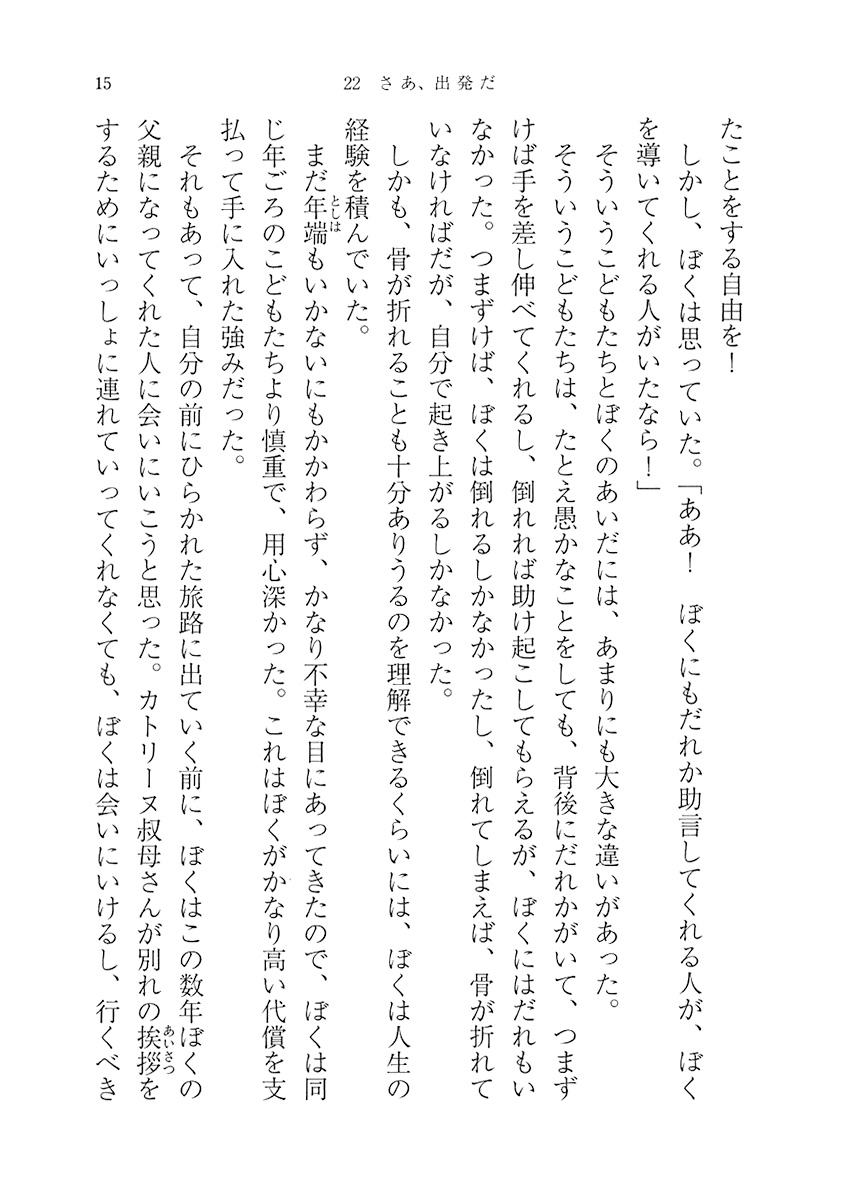 15
22 さあ、出発だ
たことをする自由を！
しかし、ぼくは思っていた。「ああ！　ぼくにもだれか助言してくれる人が、ぼく
を導いてくれる人がいたなら！」
そういうこどもたちとぼくのあいだには、あまりにも大きな違いがあった。
そういうこどもたちは、たとえ愚かなことをしても、背後にだれかがいて、つまず
けば手を差し伸べてくれるし、倒れれば助け起こしてもらえるが、ぼくにはだれもい
なかった。つまずけば、ぼくは倒れるしかなかったし、倒れてしまえば、骨が折れて
いなければだが、自分で起き上がるしかなかった。
しかも、骨が折れることも十分ありうるのを理解できるくらいには、ぼくは人生の
経験を積んでいた。
まだ年端もいかないにもかかわらず、かなり不幸な目にあってきたので、ぼくは同
としは
じ年ごろのこどもたちより慎重で、用心深かった。これはぼくがかなり高い代償を支
払って手に入れた強みだった。
それもあって、自分の前にひらかれた旅路に出ていく前に、ぼくはこの数年ぼくの
父親になってくれた人に会いにいこうと思った。カトリーヌ叔母さんが別れの挨拶を
あいさつ
するためにいっしょに連れていってくれなくても、ぼくは会いにいけるし、行くべき